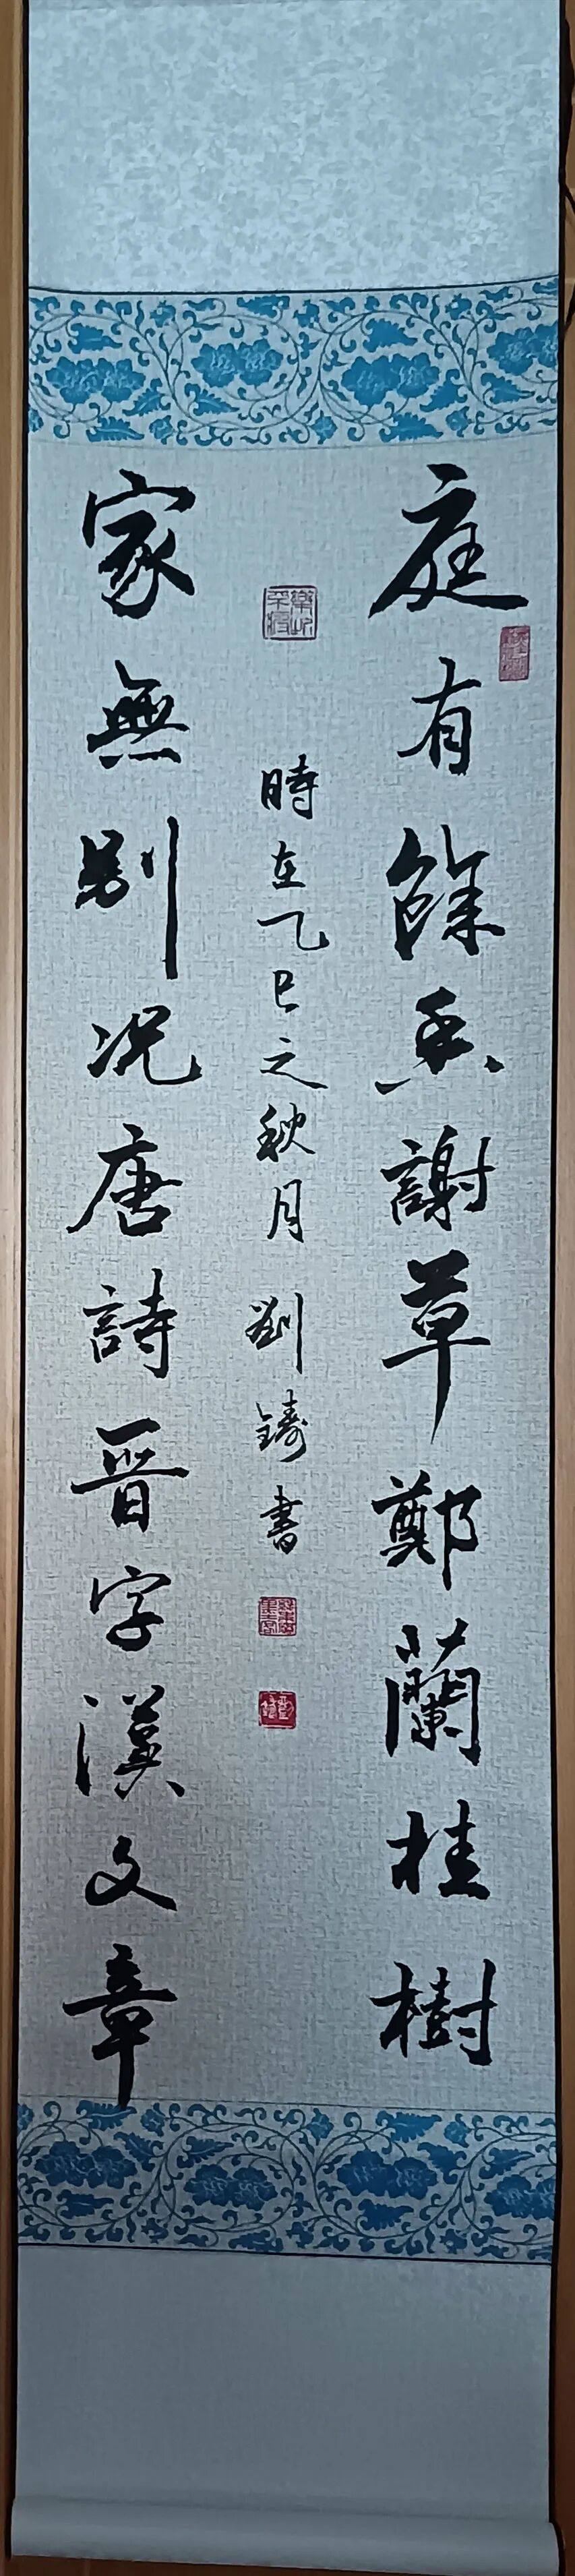 庭有餘香謝草鄭蘭桂樹
時在乙巳之秋月劉鑄書
家無別况唐詩晋字漢文章